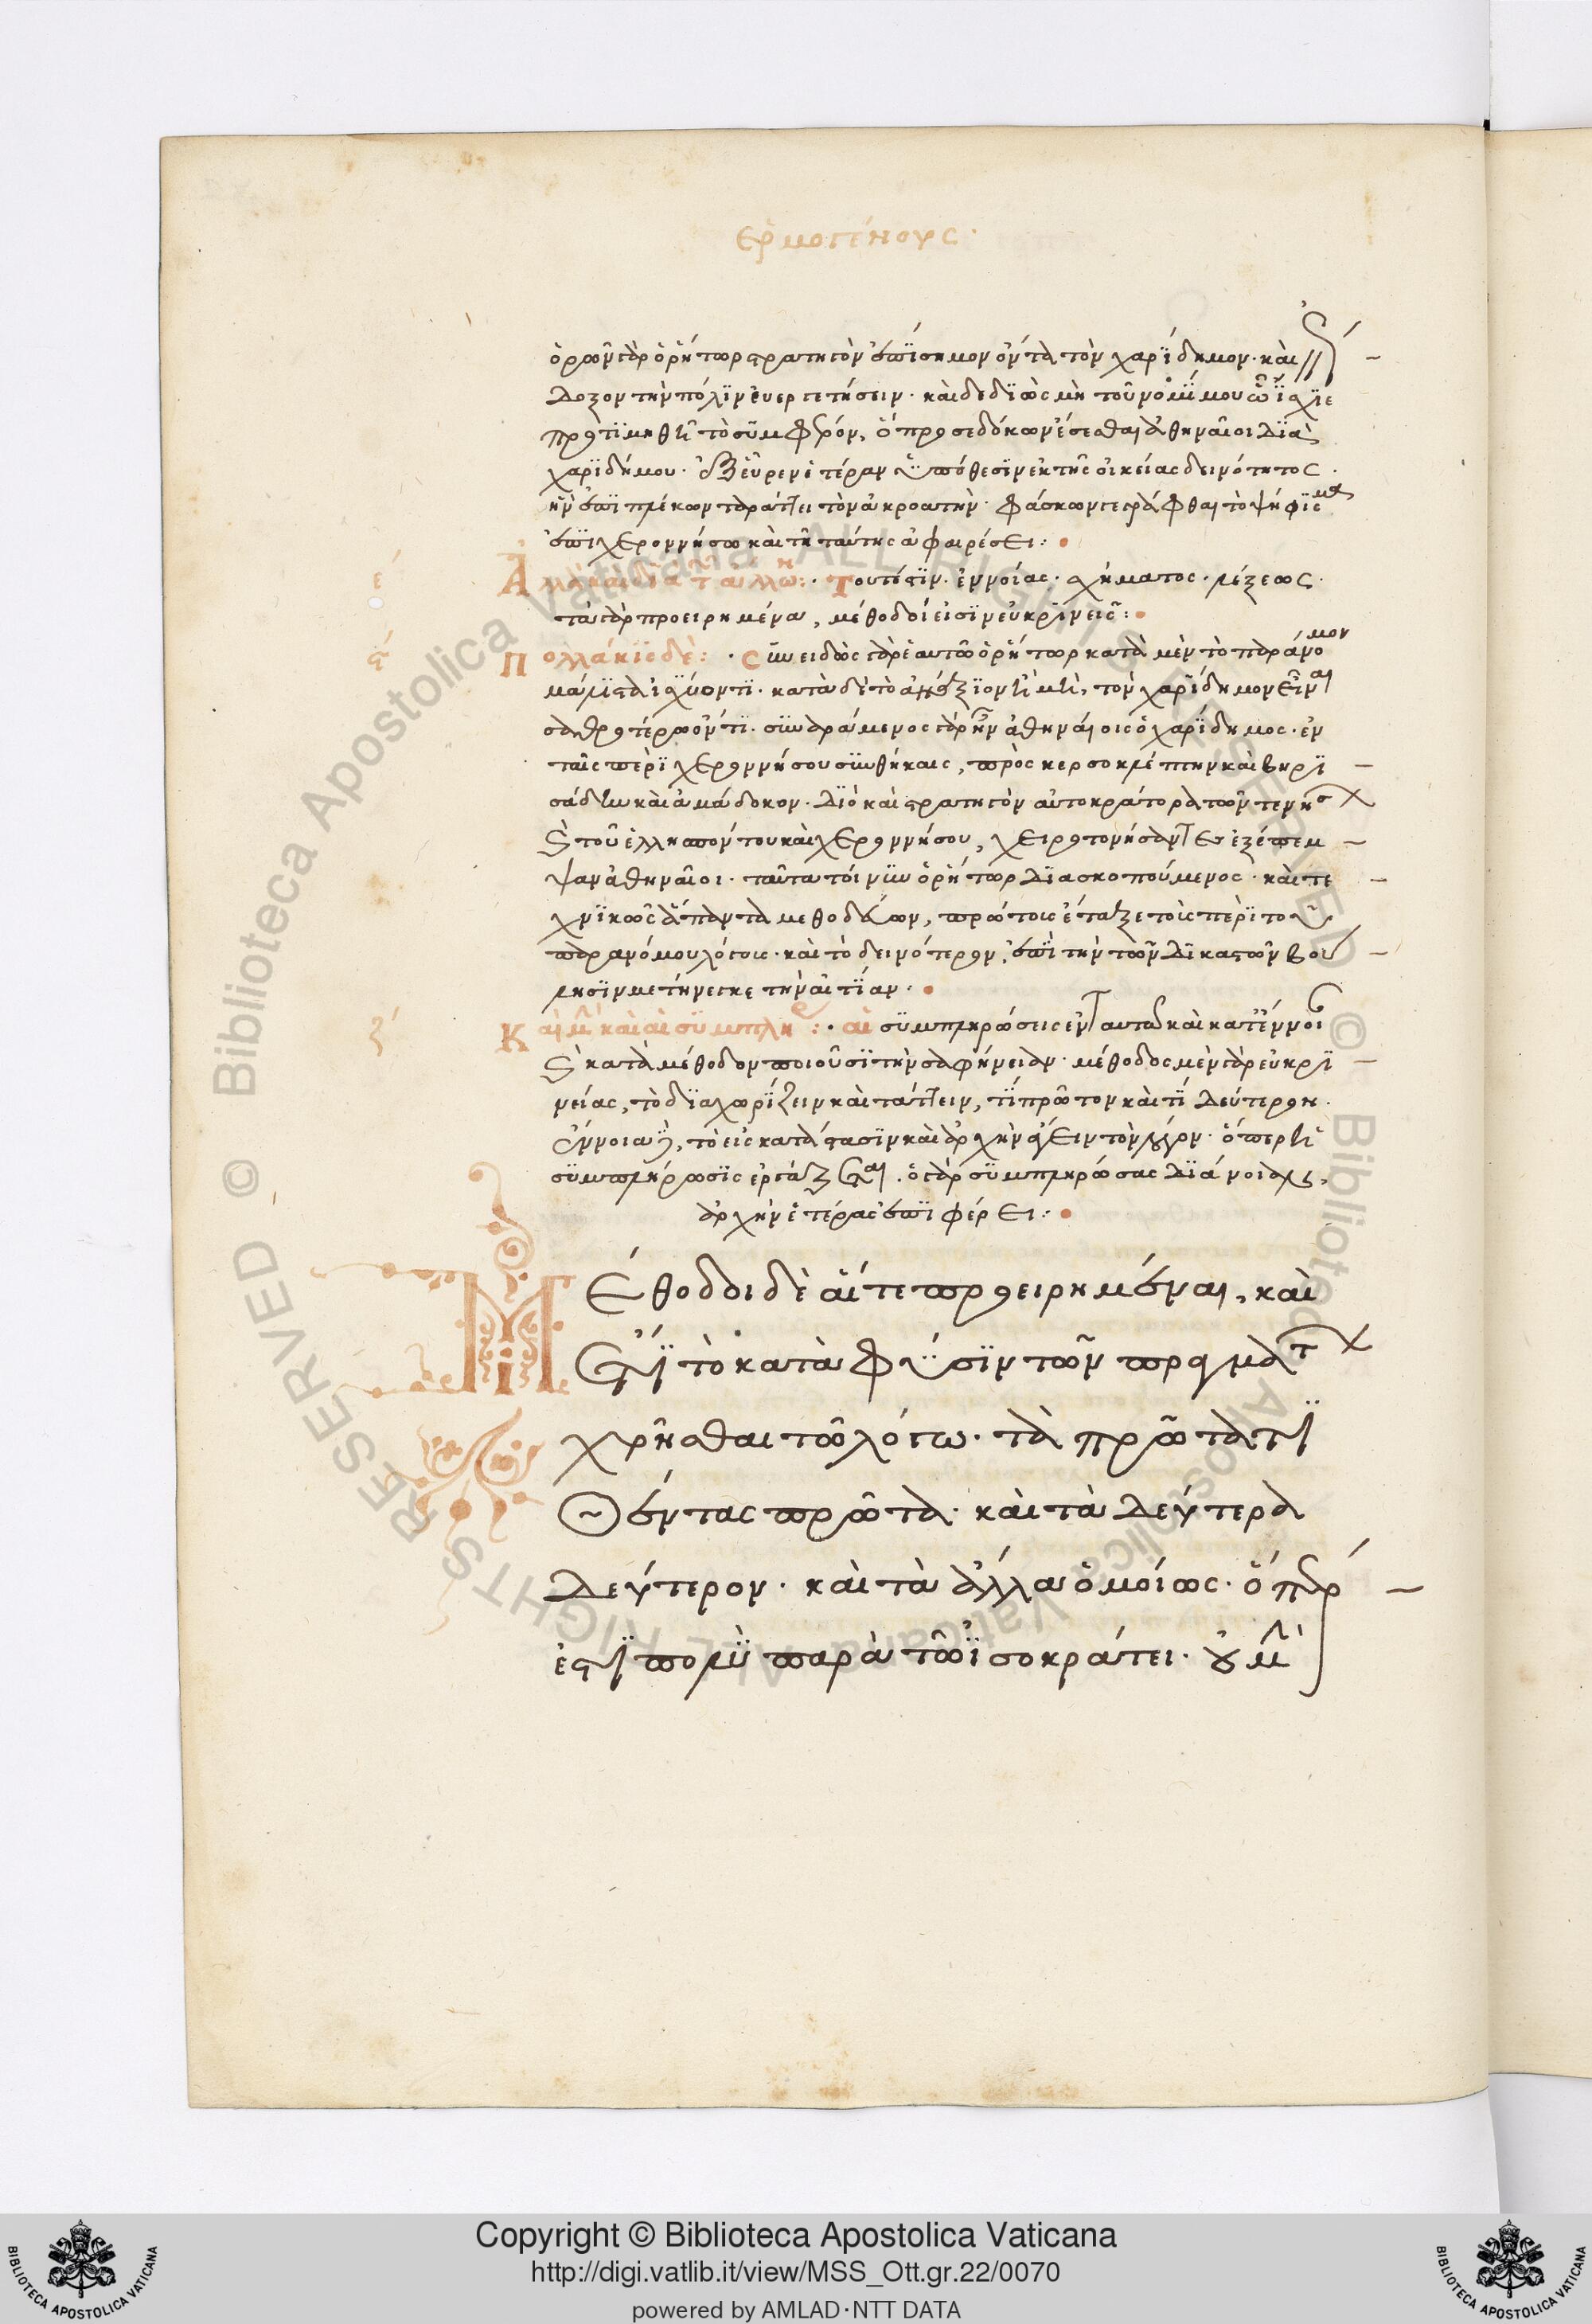 ἑρμογένους·
ὁρῶν γὰρ ὁ ῥήτωρ στρατηγὸν ἐπίσημον ὄντα τὸν χαρίδημον· καὶ
δοξον τὴν πόλιν εὐεργετήσειν· καὶ δεδιὼς μὴ τοῦ νομίμου
προτιμηθῆ τὸ σύμφερον, ὃ προσεδόκων ἔσεσθαι ἀθηναῖοι διὰ
χαριδήμου· εὗρεν ἑτέραν ὑπόθεσιν ἐκ τῆς οἰκείας δεινότητος·
ἣν ἐπιπλέκων ταράττει τὸν ἀκροατήν· φάσκων γεγράφθαι τὸ ψήφισμα
ἐπὶ χερονήσω καὶ τῆ ταύτης ἀφαιρέσει:
ε΄
Ἀλλὰ καὶ διὰ τ ἄλλων: · Τουτέστιν· ἐννοίας· σχήματος· λέξεως·
τὰ γὰρ προειρημένα, μέθοδοί εἰσιν εὐκρινείας:
ς΄
Πολλάκις δὲ: · συνειδὼς γὰρ ἑαυτῶ ὁ ῥήτωρ κατὰ μὲν τὸ παράνομον
μάλιστα ἰσχύοντι· κατὰ δὲ τὸ ἀνάξιον τιμῆς τὸν χαρίδημον εἶναι
σαθροτέρω ὄντι· συναράμενος γὰρ ἦν ἀθηναίοις ὁ χαρίδημος· ἐν
ταῖς περὶ χερονήσου συνθήκαις, πρὸς κερσοκλέπτην καὶ βηρι
σάδην καὶ ἀμάδοκον· διὸ καὶ στρατηγὸν αὐτοκράτορα τῶν τε νήσων
καὶ τοῦ ἑλλησπόντου καὶ χερονήσου, χειροτονήσαντες ἐξέπεμ
ψαν ἀθηναῖοι· ταῦτα τοίνυν ὁ ῥήτωρ διασκοπούμενος· καὶ τε
χνικῶς ἅπαντα μεθοδεύων, πρώτοις ἐτάξε τοῖς περὶ τοῦ
παρανόμου λόγοις· καὶ τὸ δεινότερον, ἐπὶ τὴν τῶν δικαστῶν βού
λησιν μετήνεγκε τὴν αἰτίαν·
ζ΄
Καὶ μὴν καὶ αἱ συμπλη: · αἱ συμπληρώσεις ἐνταῦθα καὶ κατ' ἔννοιαν
καὶ κατὰ μέθοδον ποιοῦσι τὴν σαφήνειαν· μέθοδος μὲν γὰρ εὐκρι
νείας, τὸ διαχωρίζειν καὶ τάττειν, τί πρῶτον καὶ τί δεύτερον·
ἔννοια δὲ, τὸ εἰς κατάστασιν καὶ ἀρχὴν ἄγειν τὸν λόγον· ὅπερ ἡ
συμπλήρωσις ἐργάζεται· ὁ γὰρ συμπληρώσας διάνοιαν,
ἀρχὴν ἑτέρας ἐπιφέρει:
Μέθοδοι δὲ αἵ τε προειρημέναι, καὶ
ἔτι τὸ κατὰ φύσιν τῶν πραγμάτων
χρῆσθαι τῶ λόγω· τὰ πρῶτα τι
θέντας πρῶτα· καὶ τὰ δεύτερα
δεύτερον· καὶ τὰ ἄλλα ὁμοίως· ὅπερ
ἐστὶ πολὺ παρὰ τῶ ἰσοκράτει· οὐ μὴν
Copyright © Biblioteca Apostolica Vaticana
http://digi.vatlib.it/view/MSS_Ott.gr.22/0070
powered by AMLAD·NTT DATA